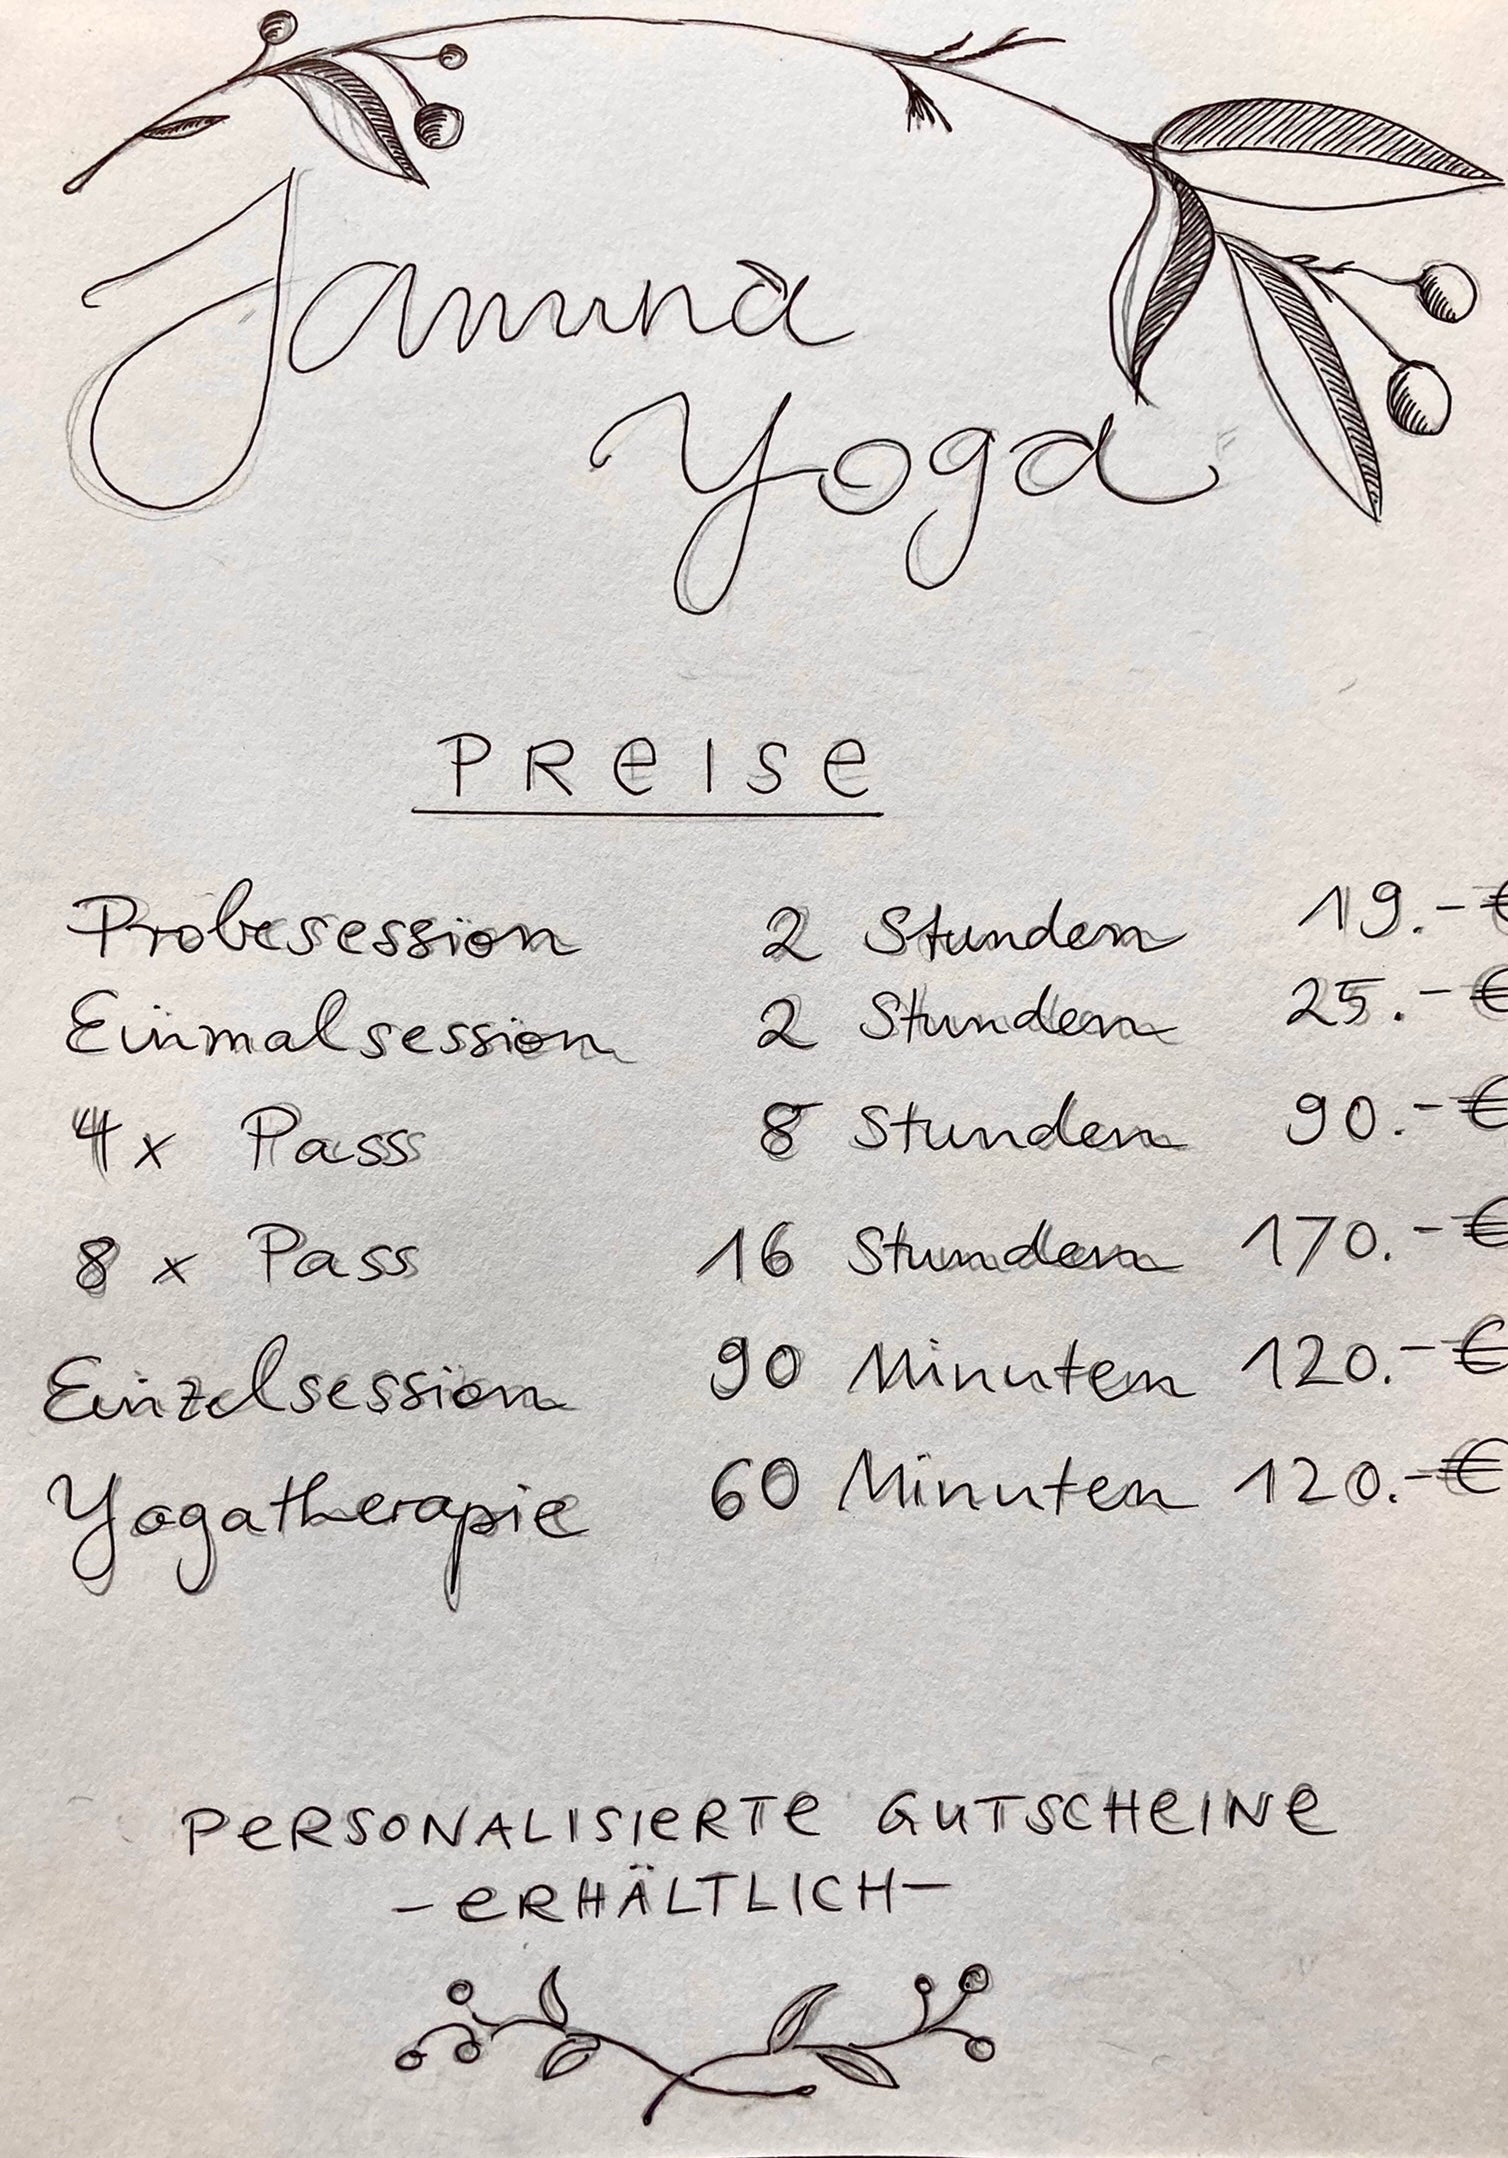 Jamuna
Yoga
PReISe
Probesession 2 Stunden 19.-€
Einmalsession 2 Stunden 25.-€
4x Pass 8 Stunden 90.-€
8 x Pass 16 Stunden 170.-€
Einzelsession 90 Minuten 120.-€
Yogatherapie 60 Minuten 120.-€
PeRSONALISIeRTe GUTSCHeINe
-eRHÄLTLICH-